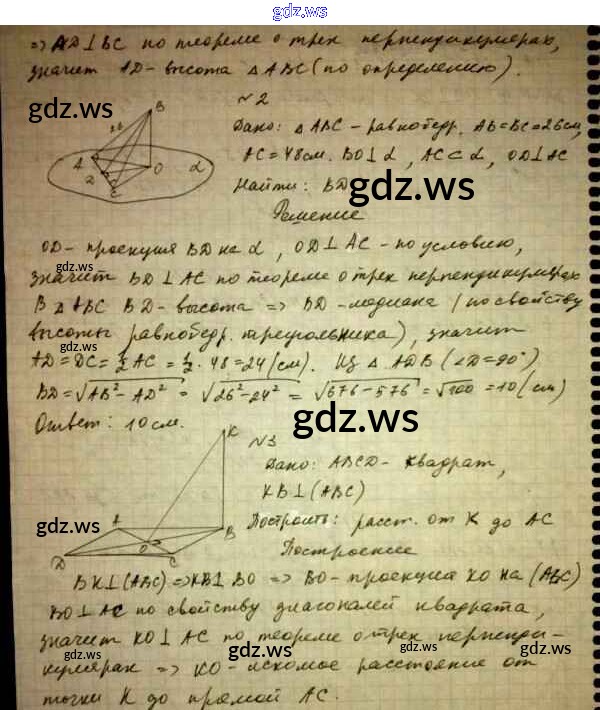 gdz.ws
=> AD ⊥ BC по теореме о трех перпендикулярах,
значит AD - высота △ ABC (по определению).
gdz.ws
gdz.ws
№2
Дано: △ ABC - равнобедр. AB=BC=26см,
AC=48см. BO ⊥ α, AC ⊂ α, OD ⊥ AC
Найти: BD
gdz.ws
B
26
A
O
α
2
C
Решение
OD - проекция BD на α, OD ⊥ AC - по условию,
gdz.ws
значит BD ⊥ AC по теореме о трех перпендикулярах
В △ ABC BD - высота => BD - медиана (по свойству
высоты равнобедр. треугольника), значит
AD = DC = ½ AC = ½ · 48 = 24 (см). Из △ ADB (∠D = 90°)
BD = √AB² − AD² = √26² − 24² = √676 − 576 = √100 = 10 (см)
gdz.ws
Ответ: 10 см.
K
№3
Дано: ABCD - квадрат,
KB ⊥ (ABC)
gdz.ws
Построить: расст. от K до AC
gdz.ws
A
B
O
D
C
Построение
BK ⊥ (ABC) => KB ⊥ BO => BO - проекция KO на (ABC)
gdz.ws
BO ⊥ AC по свойству диагоналей квадрата,
значит KO ⊥ AC по теореме о трех перпенди-
gdz.ws
gdz.ws
кулярах => KO - искомое расстояние от
точки K до прямой AC.
gdz.ws